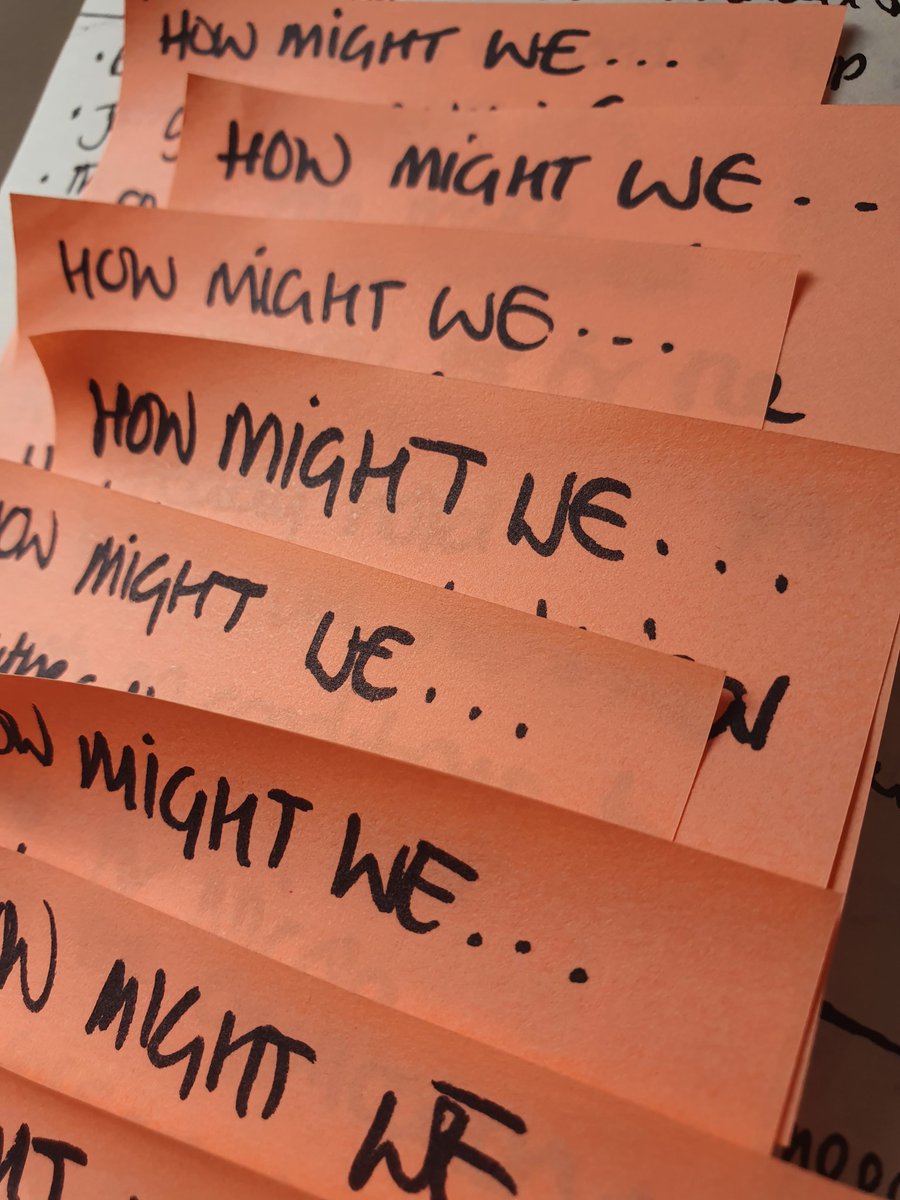 HOW MIGHT WE...
HOW MIGHT WE...
HOW MIGHT WE...
HOW MIGHT WE...
HOW MIGHT WE...
OW MIGHT WE...
OW MIGHT WE